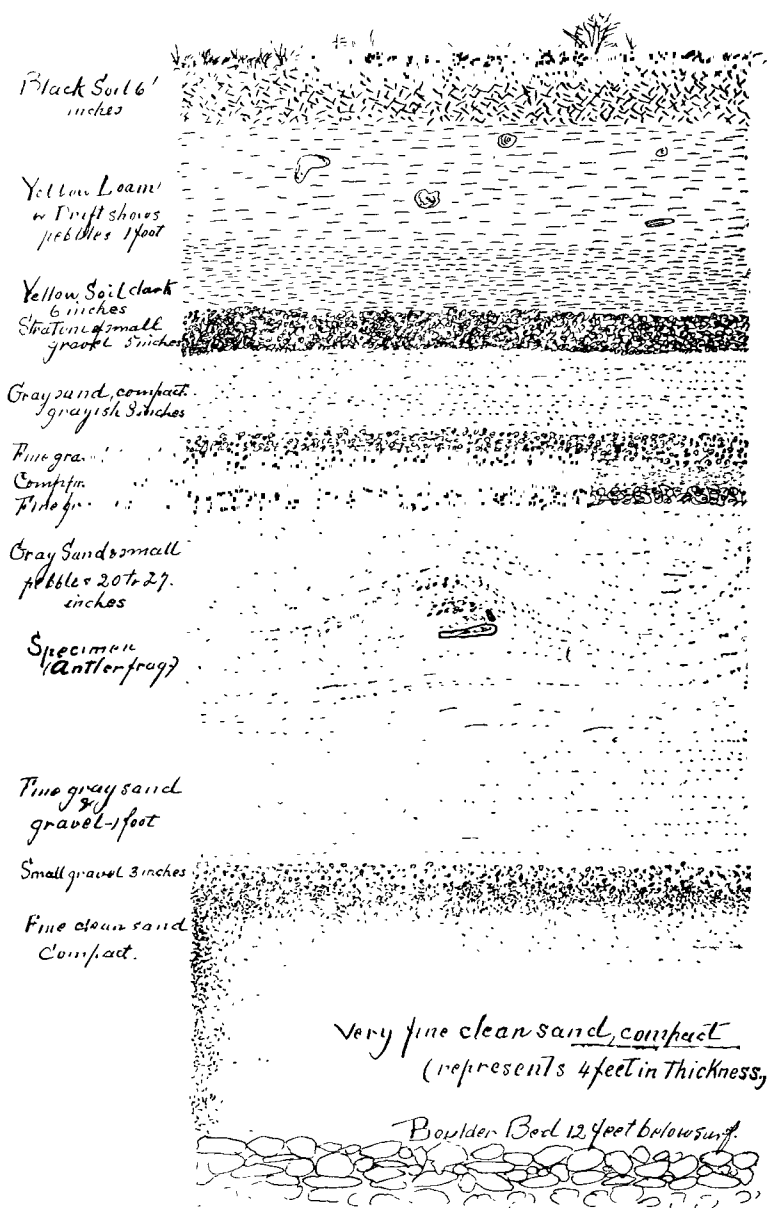 Black Soil 6'
inches
Yellow Loam
w Drift shows
pebbles 1 foot
Yellow Soil dark
6 inches
Stratum of small
gravel 5 inches
Gray sand, compact.
grayish 3 inches
Fine
Fine
Gray Sand & small
pebbles 20 to 27.
inches
Specimen
(Antler frag)
Fine gray sand
&
gravel-1 foot
Small gravel 3 inches
Fine clean sand
Compact.
Very fine clean sand, compact
(represents 4 feet in Thickness,
Boulder Bed 12 feet below surf.